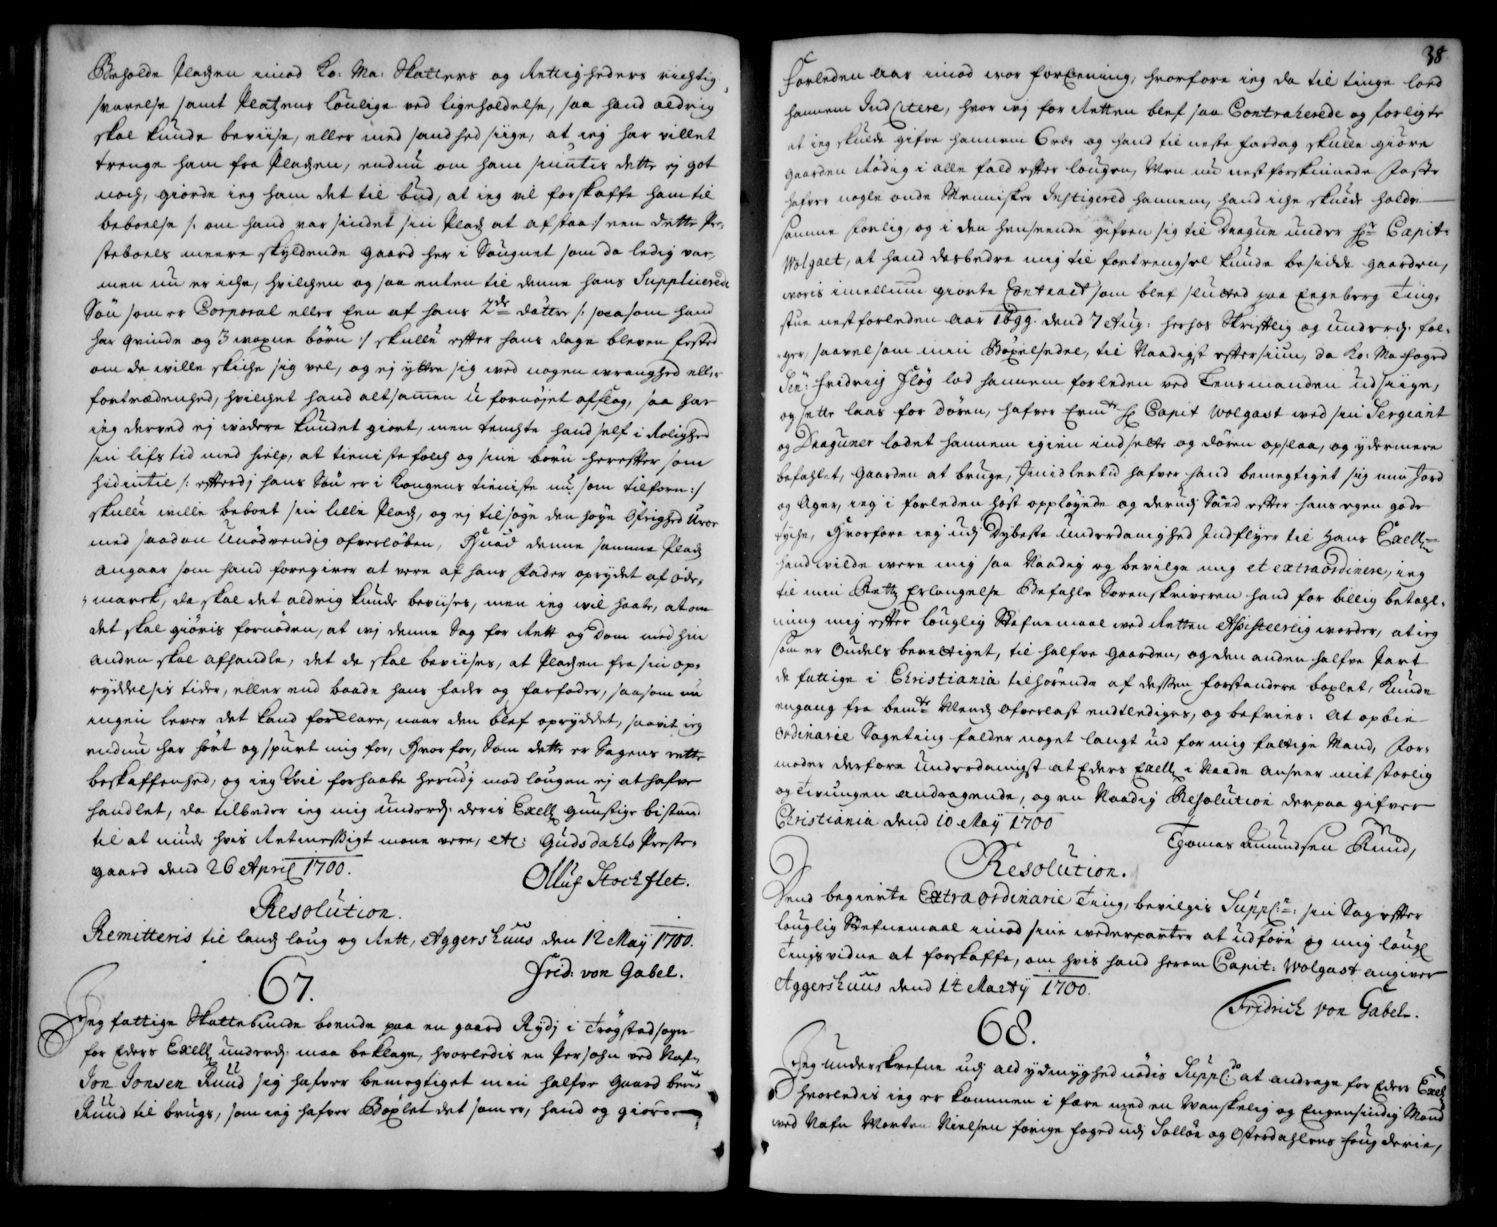 Beholde Pladsen imod Ko: Ma: Skatters og Rettigheders rigtig
svarelse samt Platzens loulige ved ligeholdelse, saa hand aldrig
skal kunde beviise, eller med sandhed siige, at ieg har villet
trenge ham fra Pladsen, endnu om ham siuntis dette ej got
noch, giorde ieg ham det til bud, at ieg vil forskaffe ham til
beboelse /: om hand var sindet sin Plads at afstaa :/ een dette Pre-
steboels meere skyldende gaard her i Sougnet som da ledig var,
men nu er iche, hvilchen og saa enten til denne hans Supplicerede
Søn som er Corporal eller Een af hans 2de døttre /: saasom hand
har qvinde og 3 woxne børn :/ skulle effter hans dage bleven fested
om de wille skiche sig vel, og ej yttre sig med nogen wranghed ell:
fortrædenhed, hvilchet hand altsammen u-fornøjet afslog, saa har
ieg derved ej widere kundet giort, men tenchte hand self i Rolighed
sin lifs tid med hielp, at tieniste folch og sine børn hereffter som
hidintil /: effterdj hans Søn er i Kongens tieniste nu som tilforn :/
skulle wille beboet sin lille Plads, og ej tilføye den høye Øfrighed Uroe
med saadan Unødvendig ofverløben, Hvad denne samme Plads
angaar som hand foregiver at vere af hans Fader oprydet af øde-
marck, da skal det aldrig kunde beviises, men ieg wil haabe, at om
det skal giøris fornøden, at vj denne Sag for Rett og Dom med hin
anden skal afhandle, det da skal beviises, at Pladsen fra sin op-
ryddelsis tider, eller end baade hans fader og farfader, saasom nu
ingen lever det kand forklare, naar den blef opryddet, saavit ieg
endnu har hørt og spurt mig for, Hvorfor, Som dette er Sagens rette
beskaffenhed, og ieg Wil forhaabe herudj med lougen ej at hafve
handlet, da tilbeder ieg mig underd: deris Excell: gunstige bistand
til at niude hvis Retmessigt mone vere, etc: Gudsdahls Præste-
gaard dend 26 April 1700.
Olluf Stochflet.
Resolution.
Remitteris til lands loug og Rett, Aggershuus den 12 Maij 1700.
Frid: von Gabel.
67.
Jeg fattige Skattebunde boende paa en gaard Rydj i Trøgstad sogn
for Eders Excell: underd: maa beklage, hvorledis en Persohn ved Nafn
Jon Jonsen Ruud sig hafver bemegtiget min halfve Gaard
Ruud til brugs, som ieg hafver Bøxlet det som er, hand og giorde
38
Forleden Aar imod vor forEening, hvorfore ieg da til tinge loed
hannem Indcitere, hvor vj for Retten blef saa Contraherede og forligte
at ieg skulde gifve hannem 6 rdr og hand til neste fardag skulle giøre
gaarden Rødig i alle fald effter lougen, Men nu nest forskinnede Faste
hafver nogle onde Mennisker Instigered hannem, hand iche skulde holde
samme forlig, og i den henseende gifven sig til Dragun under Hr Capit:
Wolgast, at hand desbedre mig til fortrengsel kunde besidde gaarden,
woris imellum giorte Contract som blef slutted paa Engeberg Ting-
stue nestforleden Aar 1699. dend 7 Aug: herhos Skrifftlig og underd: føl-
ger, saavelsom min Bøxelsedel, til Naadigst effterSiun, da Ko: Ma: foged
Sen: Fridrich Fløg lod hannem forleden ved Lensmanden udsiige,
og sette laas for dören, hafver bemte Hr Capit Wolgast ved sin Sergiant
og Draguner ladet hannem igien indsette og dören opslaa, og ydermere
befahlet, gaarden at bruge, Jmidlertid hafver hand bemegtiget sig min Jord
og Ager, ieg i forleden høst opploÿede og derudj Saaed effter hans egen gode
tyche, Hvorfore ieg udj Dybeste Underdanighed Indflyer til hans Excell:
hand wilde were mig saa Naadig og bevilge mig et extraordinere, ieg
til min Retts Erlangelse Befahle Sorenskriveren hand for billig betahl-
ning mig effter louglig Stefnemaal ved Retten Assisteerlig worder, at ieg
som er Oudels berettiget, til halfve gaarden, og den anden halfve Part
de fattige i Christiania tilhørende af dessen forstandere bøxlet, kunde
engang fra bemte Mends ofverlast endtledigis, og befries: At opbie
Ordinarie Sageting falder noget langt ud for mig fattige Mand, For-
moder derfore underdanigst at Eders Excell: i Naade anseer mit forlig
og tvungen andragende, og en Naadig Resolution derpaa gifver
Christiania dend 10 Maij 1700
Thomas Amundsen Ruud,
Resolution.
Dend begierte Extraordinarie Ting, bevilgis Suppl: sin Sag effter
louglig Stefnemaal imod sine wederparter at udføre og mig lougl:
Tingsvidne at forskaffe, om hvis hand herom Capit: Wolgast angiver
Aggershuus dend 12 Martij 1700.
Fridrich von Gabel.
68.
Jeg underskrefne udj ald ydmyghed nødis Suppl: at andrage for Eders Excell:
hvorledis ieg er kommen i fære med en Wanskelig og Eygensindig Mand
ved Nafn Morten Nielsen forige foged udj Solløe og Østerdahlens fougderie,